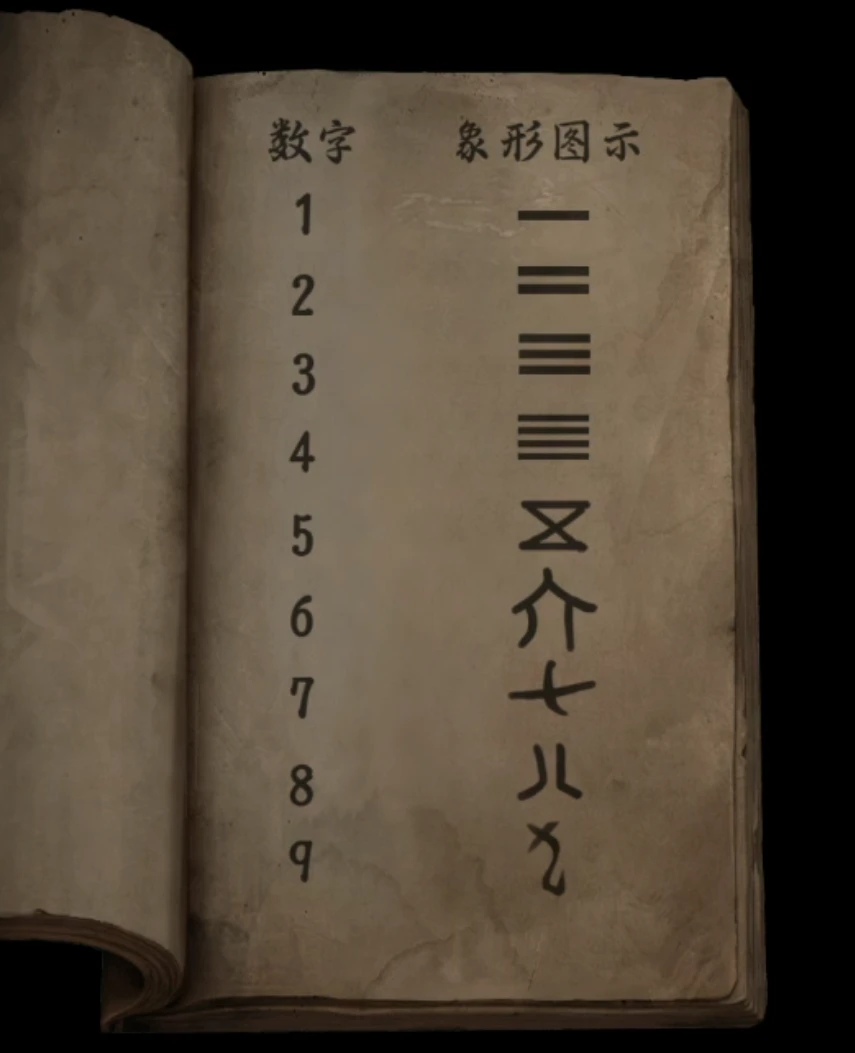 数字 象形图示
1 一
2 二
3 三
4 亖
5
6
7 七
8 八
9